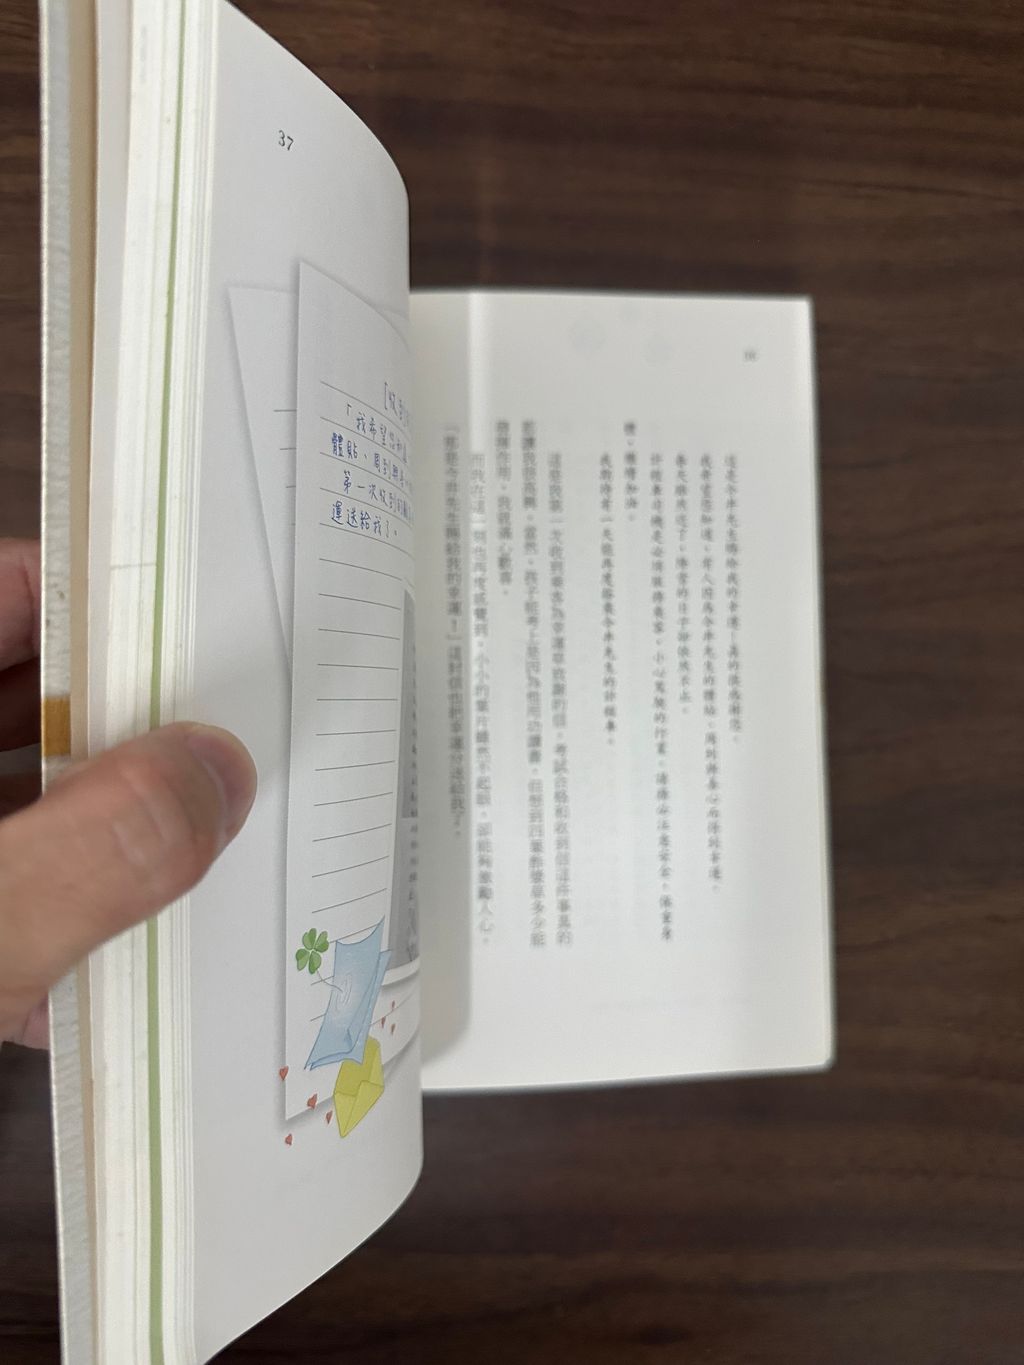 這是今井先生轉給我的幸運！真的很感謝您。
我希望您知道，有人因為今井先生的體貼、周到與善心而得到幸運。
計程車司機是必須服務乘客、小心駕駛的行業，請務必注意安全，保重身
我期待有一天能再度搭乘今井先生的計程車。
這是我第一次收到乘客為幸運草致謝的信，考試合格和收到信這件事真的
都讓我很高興。當然，孩子能考上是因為他用功讀書，但想到四葉酢漿草多少能
發揮作用，我就滿心歡喜。
而我在這一刻也再度感覺到，小小的葉片雖然不起眼，卻能夠激勵人心。
「那是今井先生轉給我的幸運！」這封信也將幸運分送給我了。
37
[收到
「我希望您知
體貼、周到與善
第一次收到的
運送給我了。